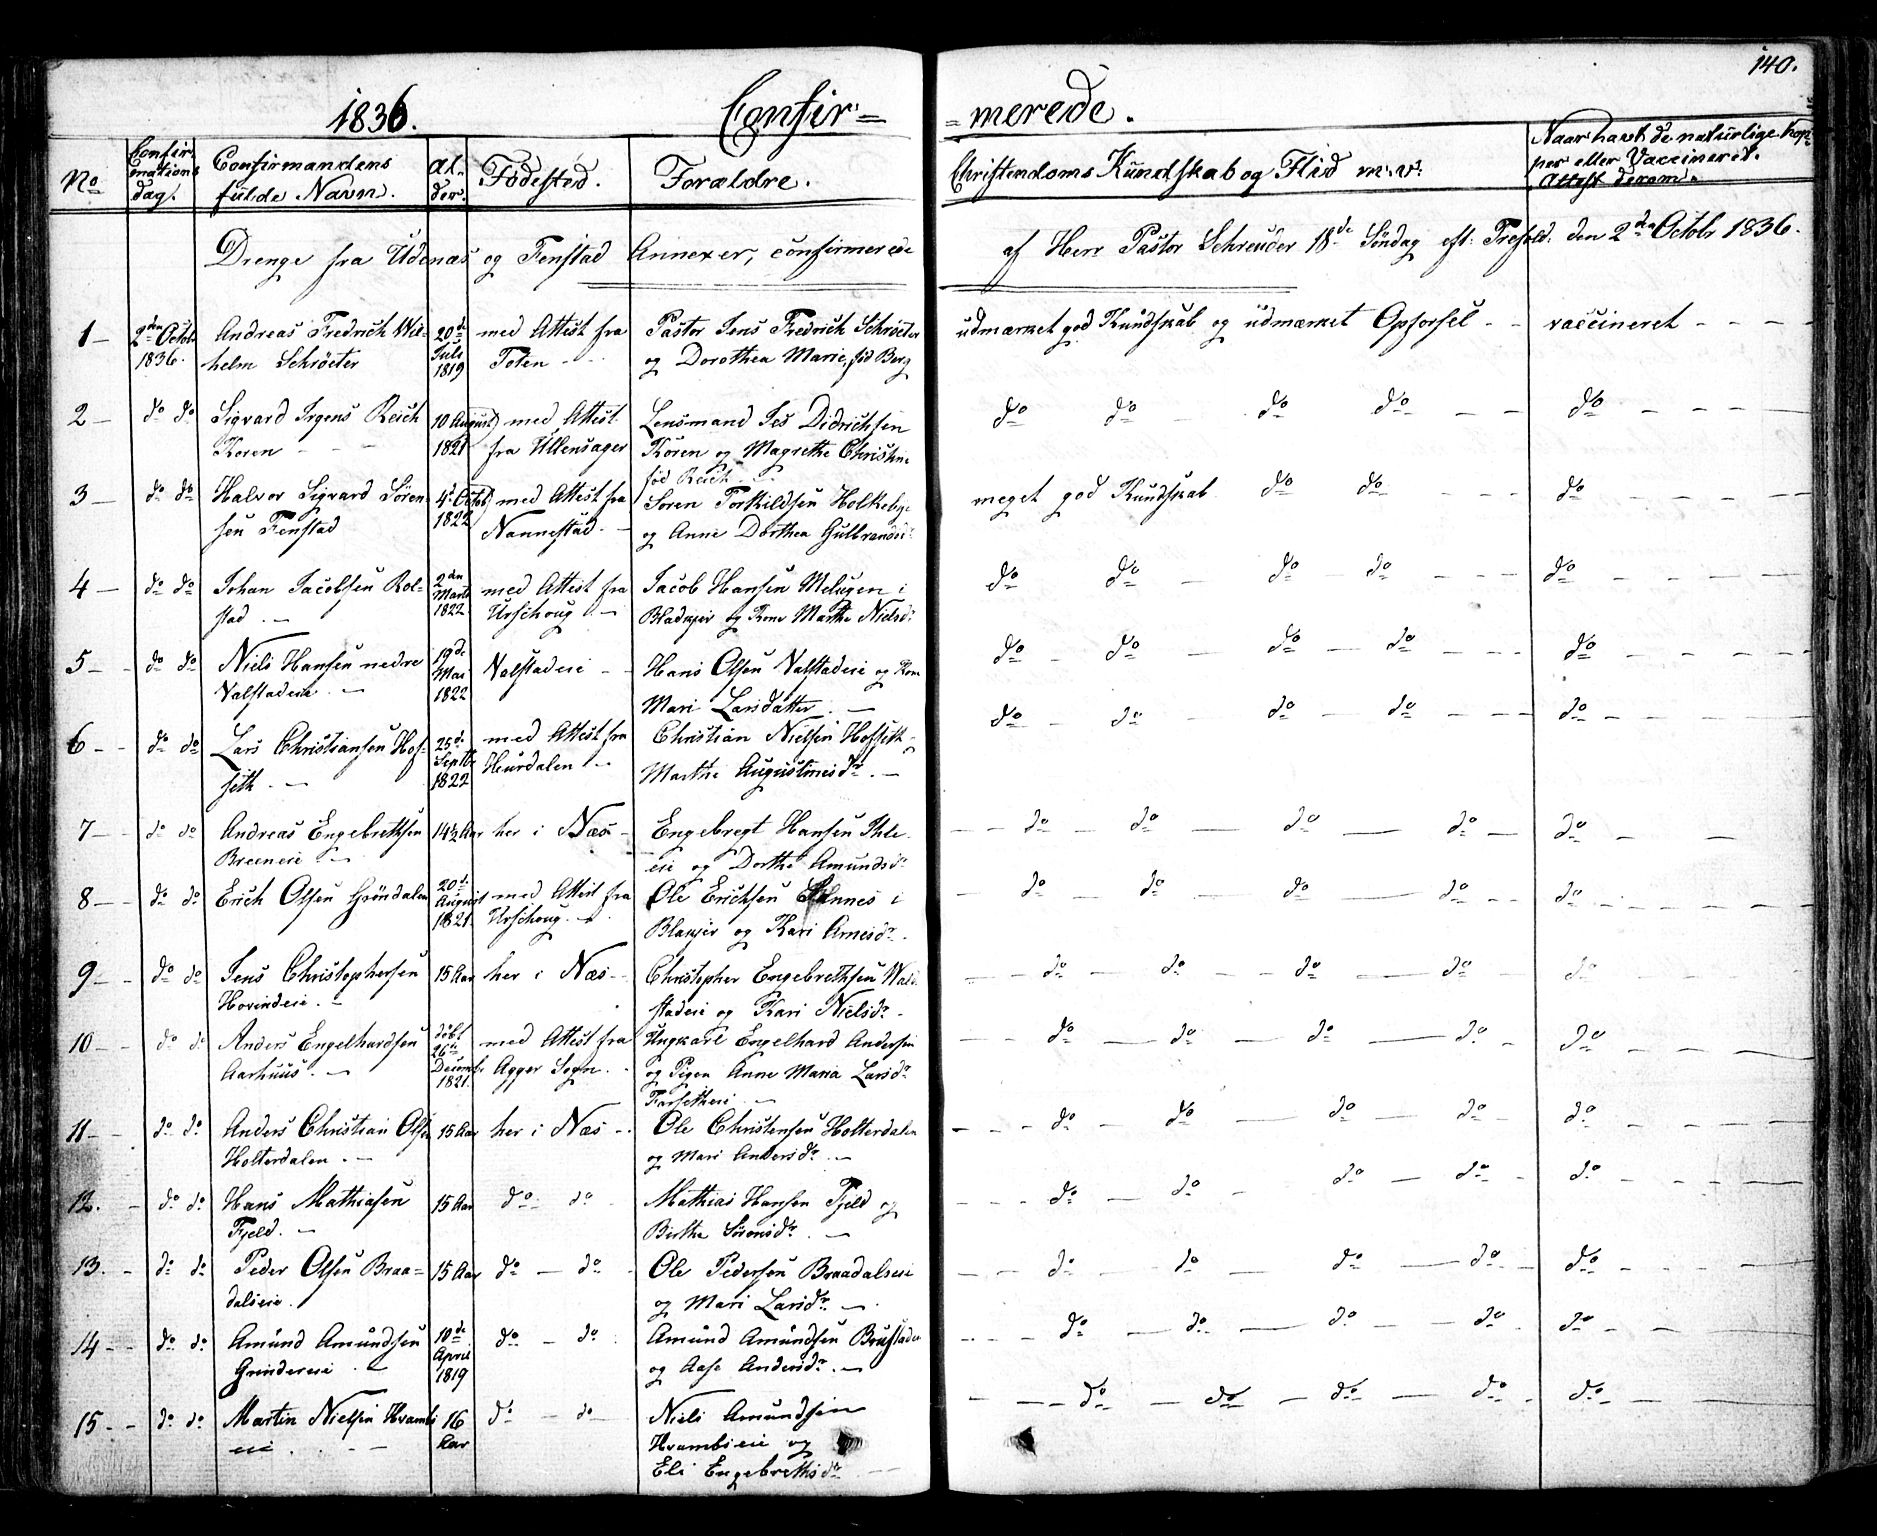 140.
1836. Confir-
-merede.
No
Confir-
mations
dag.
Confirmandens
fulde Navn.
Al-
der.
Fødested.
Forældre.
Christendoms Kundskab og Flid m.v:
Naar havt de naturlige Kop-
per eller Vaccineret.
Attest derom.
Drenge fra Udenæs og Fenstad Annexer, confirmerede
af Herr Pastor Schreuder 18de Søndag eft: Trefold: den 2den Octobr 1836.
1 - 2den Octobr
1836.
Andreas Fredrich Wil-
helm Schrøeter
20de
Juli
1819
med Attest fra
Toten - -
Pastor Jens Fredrich Schrøeter
og Dorothea Marie, fød Berg
udmærket god Kundskab og udmærket Opførsel - - vaccineret - - - -
2 - do do
Sigvard Irgens Reich
Koren - - -
10 August
1821
med Attest
fra Ullensager
Lensmand Jes Didrichsen
Koren og Magrethe Christine
fød Reich - -
do do - do do - - do - - - -
3 - do do
Halvor Sigvard Søren-
sen Fenstad
4de Octob
1822
med Attest fra
Nannestad. -
Søren Torkildsen Holkebye
og Anne Dorthea Gulbrandsdr
meget god Kundskab do do - - - do - - - -
4 - do do
Johan Jacobsen Rol-
stad . -
2den
Marts
1822
med Attest fra
Urschoug -
Jacob Hansen Melugen i
Bladkjer og Kone Marthe Nielsdr
do do - do - do - - - do - - - -
5 - - do do
Niels Hansen nedre
Valstadeie . -
19de
Mai
1822
Valstadeie - -
Hans Olsen Valstadeie og Kone
Mari Larsdatter . -
do - do - do - do - - - do - - - -
6 - - do do
Lars Christiansen Hof-
seth . -
25de
Septbr
1822
med Attest fra
Hurdalen -
Christian Nielsen Hofseth -
Marthe Augustinusdr . -
do - do - do - do - - - do - - - -
7 - - do do
Andreas Engebrethsen
Breeneie -
14½ Aar
her i Næs -
Engebregt Hansen Ihle-
eie og Dorthe Amundsdr
- - do - do - do - do - do - -
8 - - do do
Erich Olsen Grøndalen
20de
August
1821
med Attest fra
Urschoug. -
Ole Erichsen i
Blakjer og Kari Arnesdr -
- do - do - do - do - - do - - - -
9 - - do do
Jens Christophersen
Hovindeie . -
15 Aar
her i Næs -
Christopher Engebrethsen Wald-
stadeie og Kari Nielsdr -
- - do - do - - do - do - do - - -
10 - - do do
Anders Engelhardsen
Aarhuus . -
døbt
26de
Decembr
1821.
med Attest fra
Agger Sogn. -
Ungkarl Engelhard Andersen
og Pigen Anne Maria Larsdr
Farsetheie . -
- - do - do - do - do - do - - - -
11 - - do do
Anders Christian Olsen
Holterdalen . -
15 Aar
her i Næs - -
Ole Christensen Holterdalen
og Mari Andersdr . -
- - - do - do - do - do - do - - - -
12. - do do
Hans Mathiasen
Fjeld. -
15 Aar
do - do -
Mathias Hansen Fjeld og
Birthe Sørensdr . -
- - do - do - do - do - do - - - -
13. - do do
Peder Olsen Braa-
dalseie .
15 Aar
do - do -
Ole Pedersen Braadalseie
og Mari Larsdr . -
- - do - do - do - do - do - - - -
14 - - do do
Amund Amundsen
Grindereie . -
10de
April
1819
do - do .
Amund Amundsen Brustadeie
og Aase Andersdr . -
- - - do - do - do - do - do - - -
15. - do do
Martin Nielsen Hrambs
eie . . - -
16
Aar
do - do -
Niels Amundsen
Hrambseie og
Eli Engebrethsdr - -
- - - do - do - do - do - do - - - -